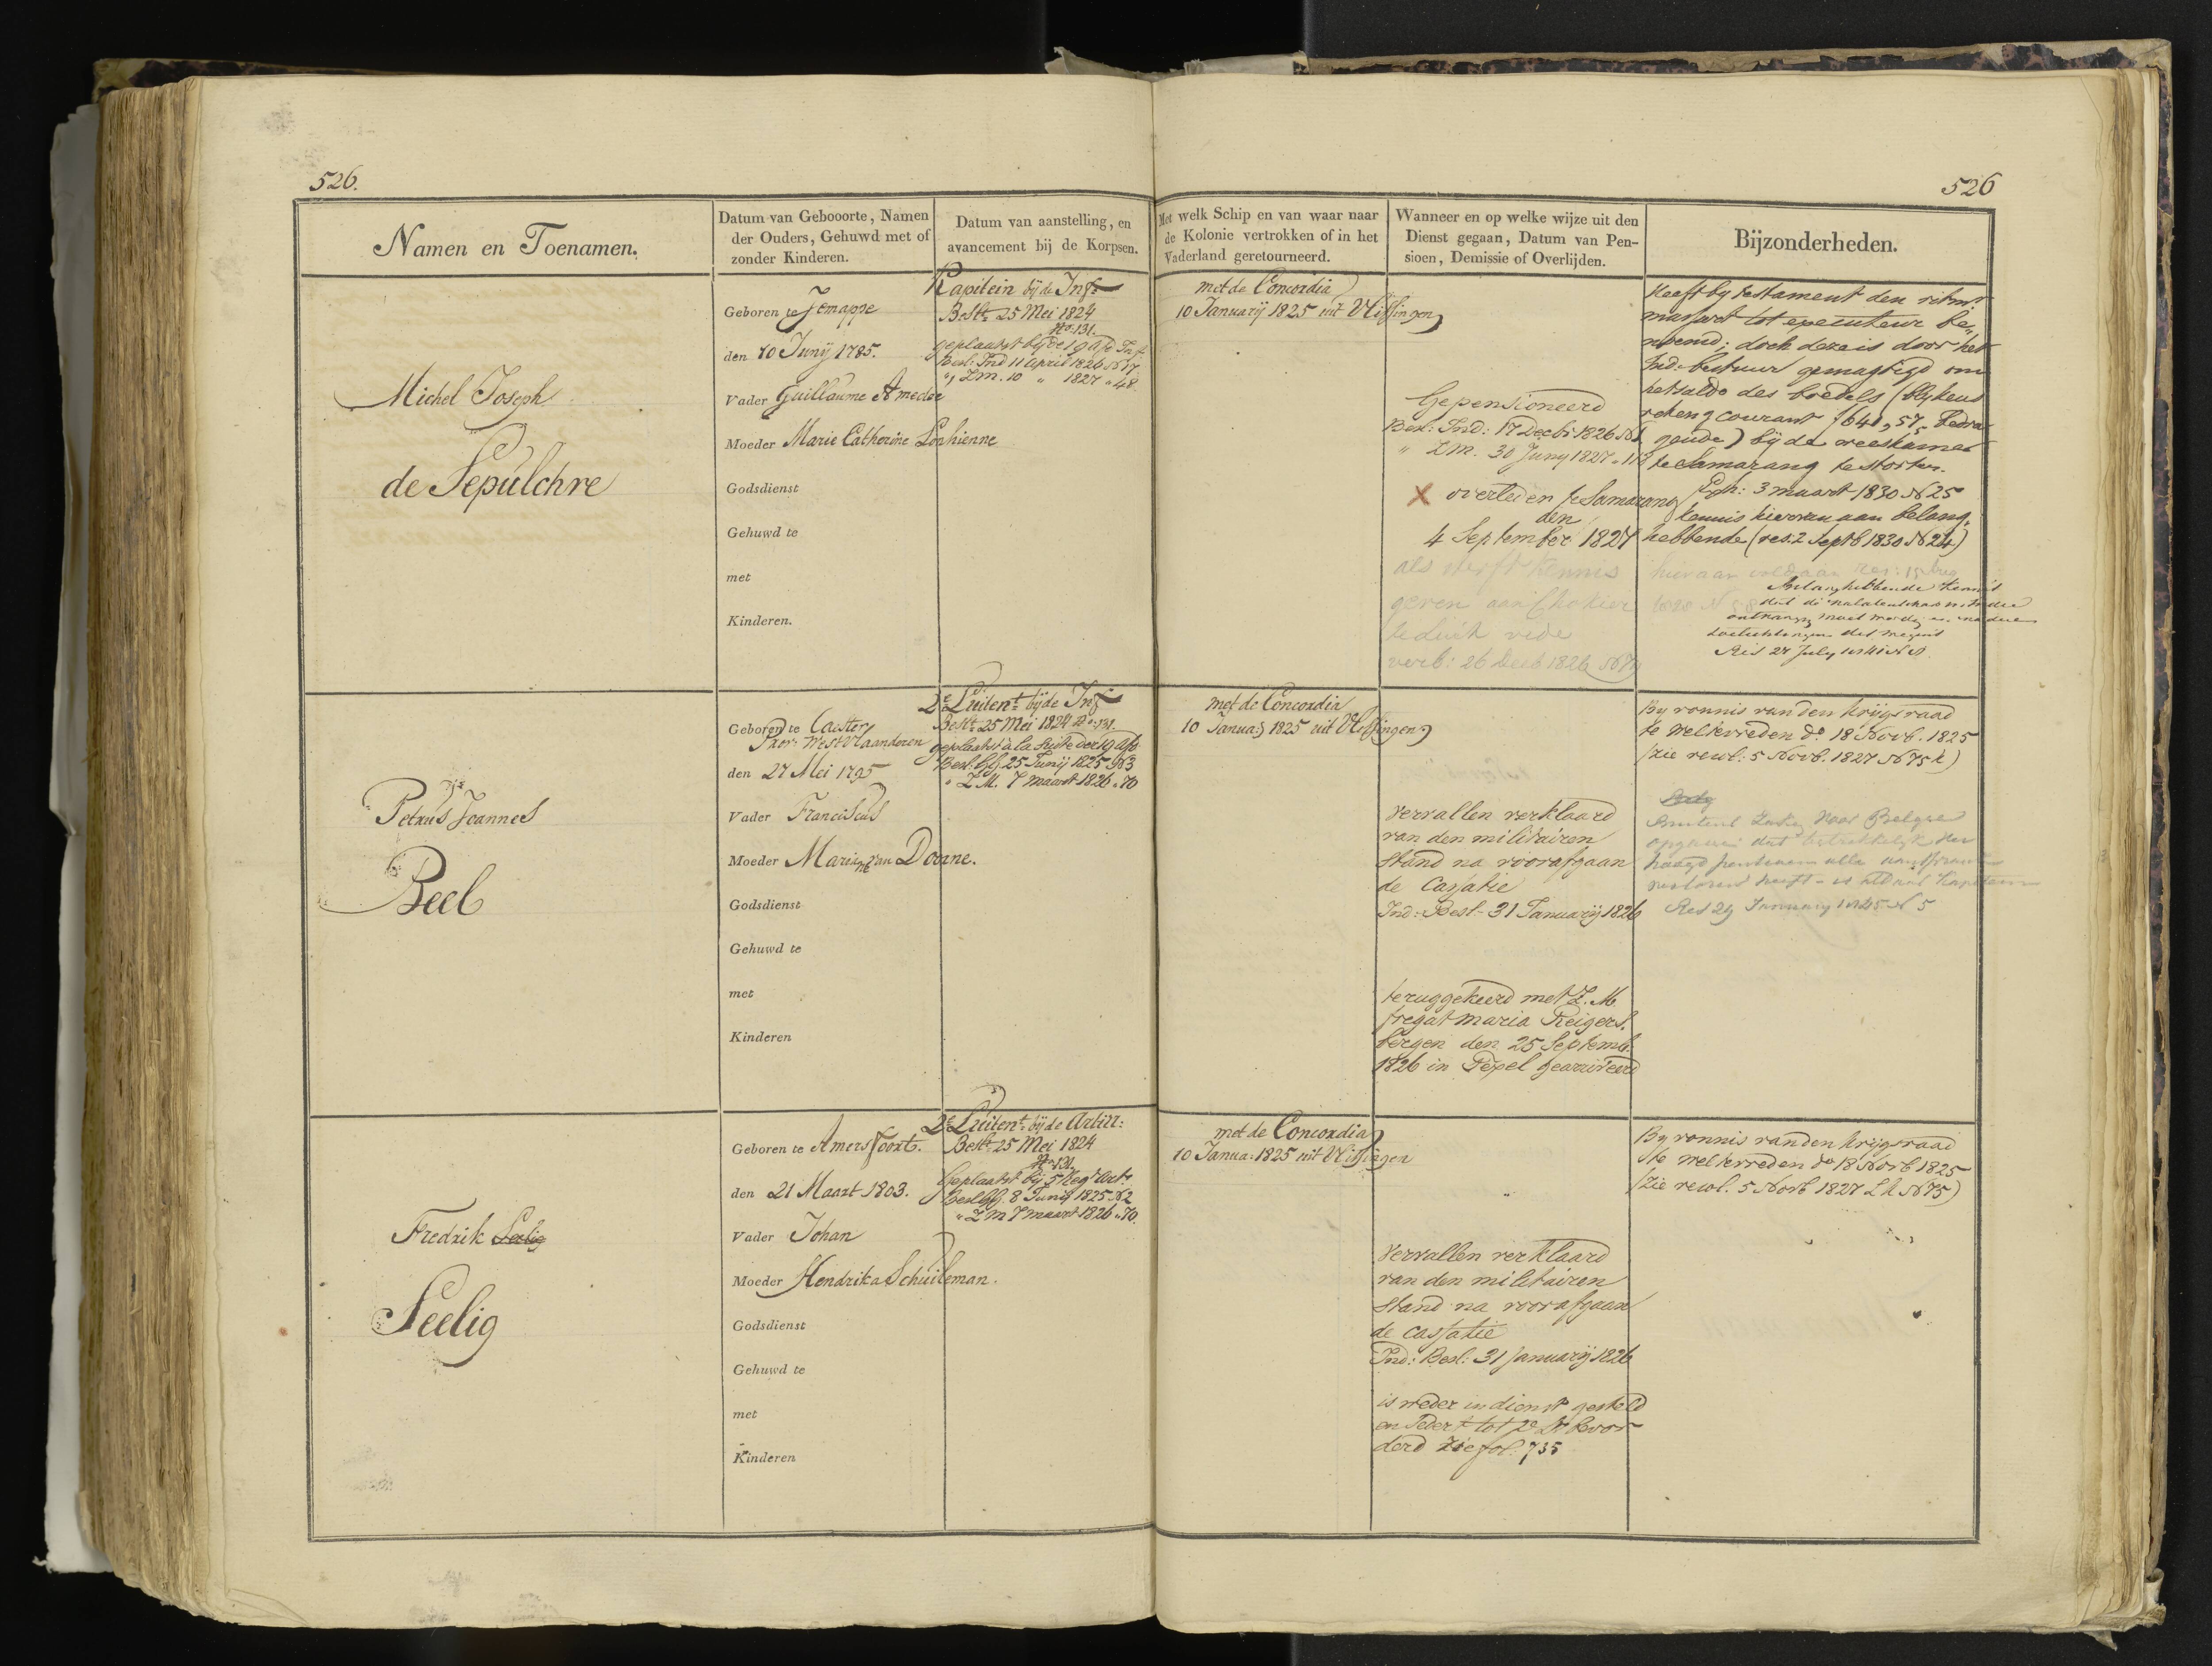 526.
526
Namen en Toenamen.
Datum van Gebooorte, Namen
der Ouders, Gehuwd met of
zonder Kinderen.
Datum van aanstelling, en
avancement bij de Korpsen.
Met welk Schip en van waar naar
de Kolonie vertrokken of in het
Vaderland geretourneerd.
Wanneer en op welke wijze uit den
Dienst gegaan, Datum van Pen-
sioen, Demissie of Overlijden.
Bijzonderheden.
Michel Joseph
de Sepulchre
Geboren te Jemappe
den 10 Junij 1785.
Vader Guillaume Amedée
Moeder Marie Catherine
Godsdienst
Gehuwd te
met
Kinderen.
Kapitein bij de Inf
Beslt 25 Mei 1824
No. 131.
geplaatst bij de 19 Afd Inf
Besl: Ind 11 April 1826 N 17
" Z.M. 10 " 1827 " 48
met de Concordia
10 January 1825 uit Vlissingen
Gepensioneerd
Besl: Ind: 17 Decbr 1826 N 1
" Z.M. 30 Juny 1827 " 118
X overleden te Samarang
den
4 September 1827
als kennis
geven aan Chokier
te Luik
verb: 26 1826
heeft by testament den ritmr
tot executeur be„
noemd; doch deze is door het
Ind: bestuur gemagtigd om
het saldo des boedels (blykens
rekeng courant f 641,57 bedra-
gende) bij de weeskamer
te Samarang te storten.
3 maart 1830 N 25
kennis hiervan aan belang„
hebbende (res: 2 Septb 1830 N 24)
hieraan voldaan res: 15
Belanghebbende kennis
dat de nalatenschap in Indie
ontvangen moet worden en nadere
Res 27 July 1841 N
Petrus Joannes
Beel
Geboren te Caster
Prov: West Vlaanderen
den 27 Mei 1795
Vader Franciscus
Moeder Marianne van Doorne.
Godsdienst
Gehuwd te
met
Kinderen
2e Luitent bij de Inf
Beslt 25 Mei 1824 No. 131.
geplaatst à la suite der 19 Afd
Besl: GG 25 Junij 1825 N 3
" Z.M. 7 maart 1826 " 70
met de Concordia
10 Januar 1825 uit Vlissingen
vervallen verklaard
van den militairen
stand na voorafgaan
de Cassatie
Ind: Besl: 31 January 1826
teruggekeerd met Z. M.
fregat maria Reigers„
bergen den 25 Septemb:
1826 in Texel gearriveerd
By vonnis van den krijgsraad
te Weltevreden do 18 Novb. 1825
(zie revol: 5 Novb. 1827 N 75 k)
Seelig
Buitenl Zaken voor Belgie
opgaven dat betrekkelijk den
pensioen alle aanspraak
verloren heeft - is Kapitein
Res 29 January 1845 N 5
Fredrik Seelig
Seelig
Geboren te Amersfoort.
den 21 Maart 1803.
Vader Johan
Moeder Hendrika Schuileman.
Godsdienst
Gehuwd te
met
Kinderen
2e Luitent bij de Artill:
Beslt 25 Mei 1824
No 131.
Geplaatst bij 5 Reg Art:
Besl GG. 8 Junij 1825 N 2
" Z M 7 maart 1826 " 70.
met de Concordia
10 Janua: 1825 uit Vlissingen
vervallen verklaard
van den militairen
stand na voorafgaan
de cassatie
Ind: Besl: 31 January 1826
is weder in dienst gesteld
en Sedert tot 2e Lt bevor-
derd zie fol: 735
By vonnis van den krijgsraad
te Weltevreden do 18 Novb 1825
(zie revol. 5 Novb 1827 L k N 75)